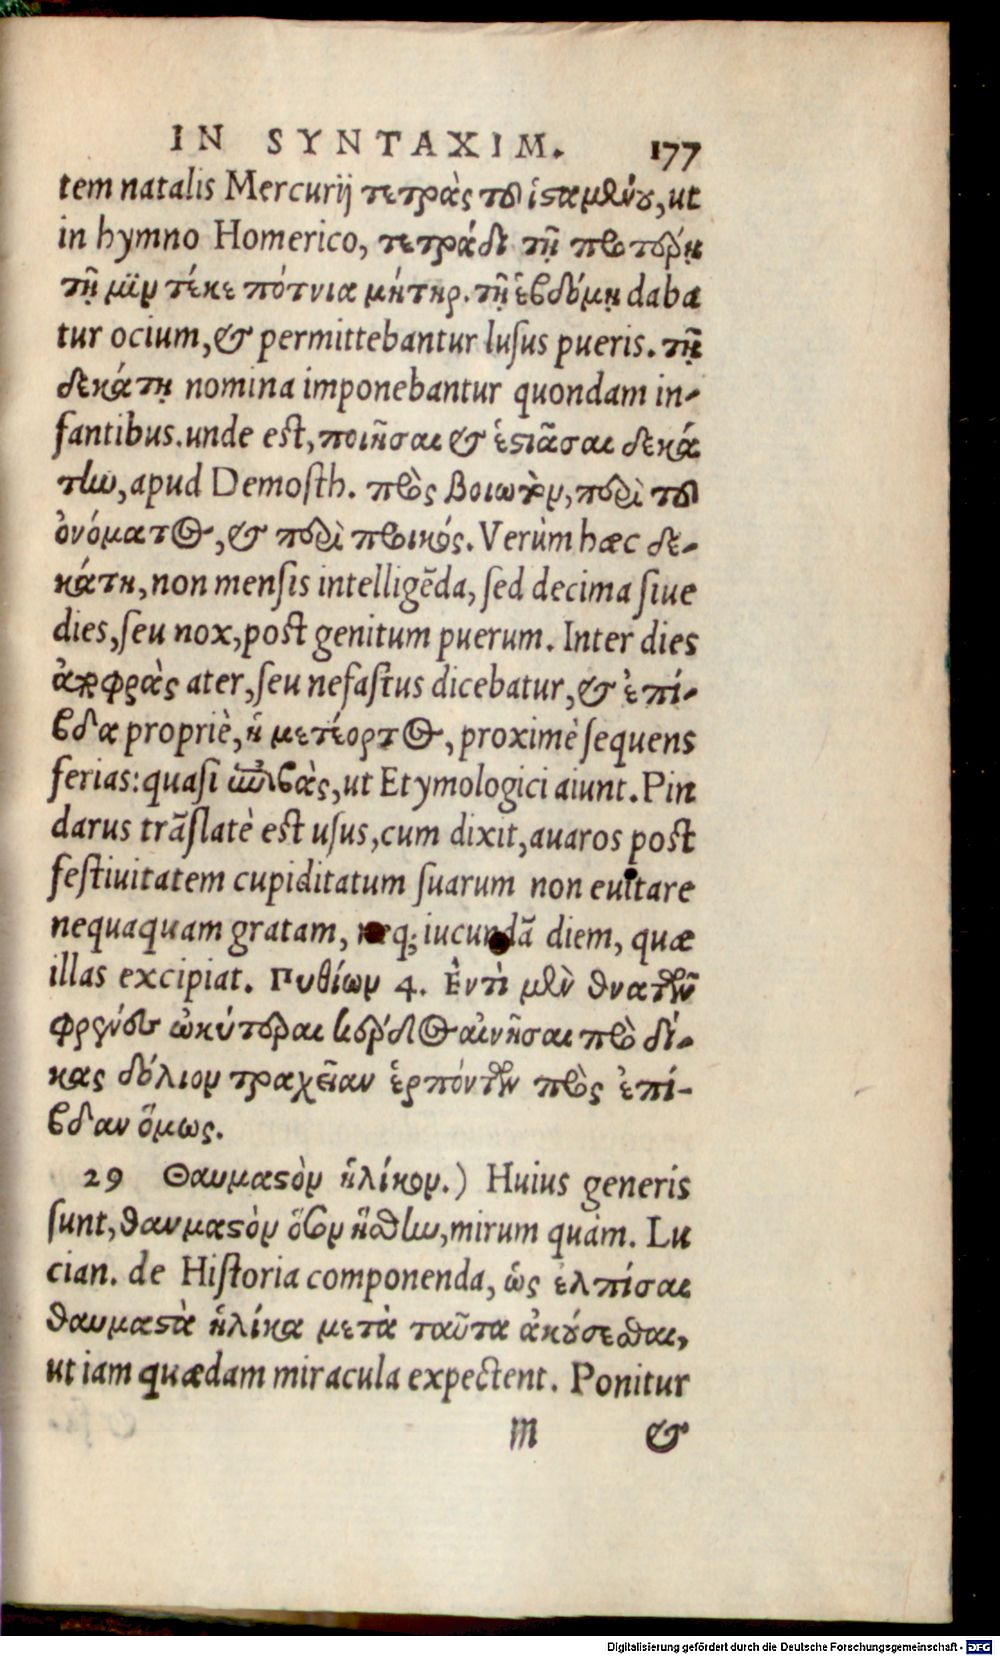 IN SYNTAXIM. 177
tem natalis Mercurij τετρὰς τοῦ ἱσαμθύου, ut
in hymno Homerico, τετράδι τῇ προτέρῃ
τῇ μιν τέκε πότνια μήτηρ. τῇ ἑβδόμῃ daba
tur ocium, & permittebantur lusus pueris. τῇ
δεκάτῃ nomina imponebantur quondam in-
fantibus. unde est, ποιῆσαι & ἑστιᾶσαι δεκά
τίω, apud Demosth. πρὸς Βοιωτὸν, περὶ τοῦ
ὀνόματος, & περὶ προικός. Verùm hæc δε-
κάτη, non mensis intelligẽda, sed decima siue
dies, seu nox, post genitum puerum. Inter dies
ἀποφρὰς ater, seu nefastus dicebatur, & ἐπί-
βδα propriè, ἡ μετέορτος, proximè sequens
ferias: quasi ut Etymologici aiunt. Pin
darus trãslatè est usus, cum dixit, auaros post
festiuitatem cupiditatum suarum non euitare
nequaquam gratam, neq; iucundã diem, quæ
illas excipiat. Πυθίων 4. Ἐντὶ μὲν θνατῶν
φρένες ὠκύτεραι κέρδος αἰνῆσαι πρὸ δί-
κας δόλιον τραχεῖαν ἑρπόντων πρὸς ἐπί-
βδαν ὅμως.
29 Θαυμαστὸν ἡλίκον.) Huius generis
sunt, θαυμαστὸν ὅσον ἥσθην, mirum quàm. Lu
cian. de Historia componenda, ὡς ἐλπίσαι
θαυμαστὰ ἡλίκα μετὰ ταῦτα ἀκούσεσθαι,
ut iam quædam miracula expectent. Ponitur
m &
Digitalisierung gefördert durch die Deutsche Forschungsgemeinschaft - DFG